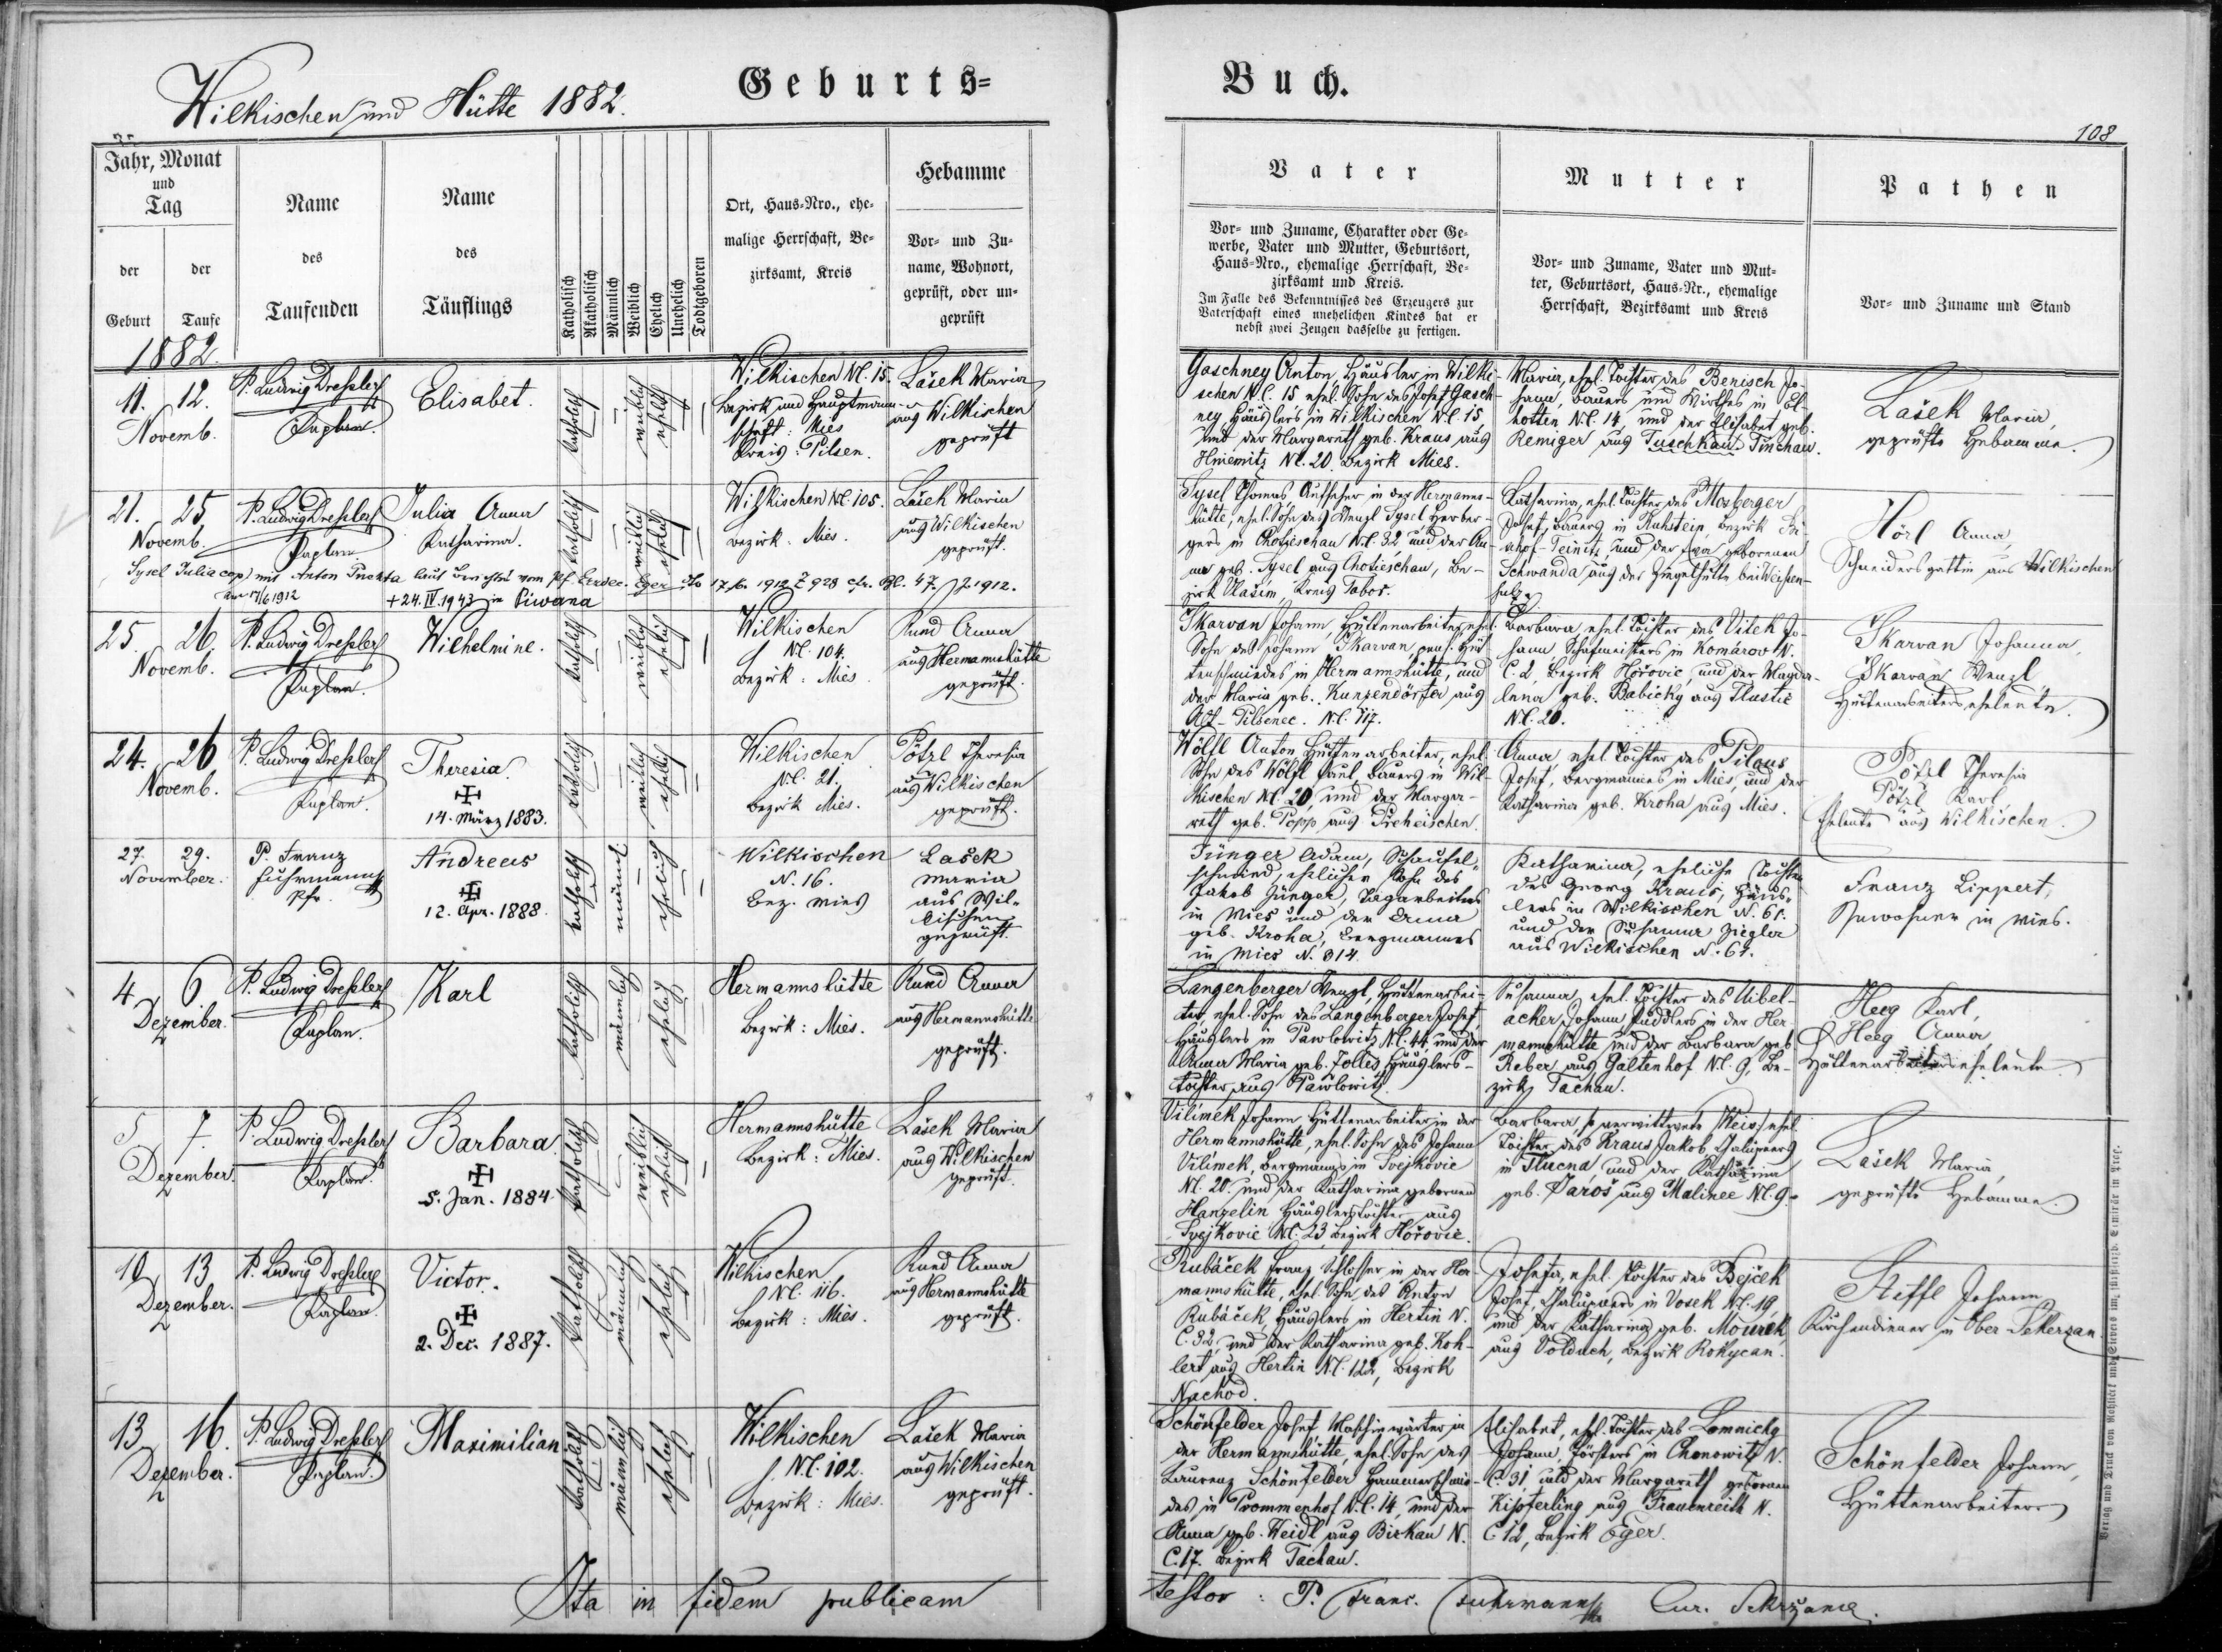 Wilkischen und Hütte 1882.
Geburts-
Buch.
108
Jahr, Monat
und
Tag
der
Geburt
der
Taufe
Name
des
Taufenden
Name
des
Täuflings
Katholisch
Akatholisch
Männlich
Weiblich
Ehelich
Unehelich
Todtgeboren
Ort, Haus-Nro., ehe-
malige Herrschaft, Be-
zirksamt, Kreis
Hebamme
Vor- und Zu-
name, Wohnort,
geprüft, oder un-
geprüft
Vater
Vor- und Zuname, Charakter oder Ge-
werbe, Vater und Mutter, Geburtsort,
Haus-Nro., ehemalige Herrschaft, Be-
zirksamt und Kreis.
Im Falle des Bekenntnisses des Erzeugers zur
Vaterschaft eines unehelichen Kindes hat er
nebst zwei Zeugen dasselbe zu fertigen.
Mutter
Vor- und Zuname, Vater und Mut-
ter, Geburtsort, Haus-Nr., ehemalige
Herrschaft, Bezirksamt und Kreis
Pathen
Vor- und Zuname und Stand
1882
11. 12.
Novemb.
P. Ludwig Dressler
Kaplan.
Elisabet.
katholisch
weiblich
ehelich
Wilkischen N.C. 15.
Bezirk und Hauptmann-
schaft: Mies
Kreis: Pilsen.
Lašek Maria
aus Wilkischen
geprüft
Gaschney Anton Häusler in Wilki-
schen N.C. 15 ehel. Sohn des Josef Gasch-
ney Häuslers in Wilkischen N.C. 15
und der Margareth geb. Kraus aus
Hniemitz N.C. 20. Bezirk Mies.
Maria, ehel. Tochter des Benisch Jo-
hann, Bauers und Wirthes in El-
hotten N.C. 14, und der Elisabet geb.
Remiger aus Tuschkau Tinchau.
Lašek Maria,
geprüfte Hebamme.
21. 25
Novemb.
P. Ludwig Dressler
Kaplan
Julia Anna
Katharina.
katholisch
weiblich
ehelich
Wilkischen N.C. 105.
Bezirk: Mies.
Lašek Maria
aus Wilkischen
geprüft.
Sysel Thomas Aufseher in der Hermanns-
hütte, ehel. Sohn des Wenzl Sysel Herber-
gers in Chotieschau N.C. 32 und der An-
na geb. Sysel aus Chotieschau, Be-
zirk Vlašim, Kreis Tabor.
Katharina, ehel. Tochter des Mosberger
Josef, Bauers in Ruhstein, Bezirk Bi-
schof-Teinitz, und der Eva geborenen
Schwanda aus der Ziegelhütte bei Weißen-
sulz.
Hörl Anna,
Schneidersgattin aus Wilkischen
Sysel Julia cop. mit Anton
am 17/6 1912
+ 24. IV. 1943 in Piwana
25. 26.
Novemb.
P. Ludwig Dressler
Kaplan.
Wilhelmine.
katholisch
weiblich
ehelich
Wilkischen
N.C. 104.
Bezirk: Mies.
Rund Anna
aus Hermannshütte
geprüft.
Skarvan Johann, Hüttenarbeiter, ehel.
Sohn des Johann Skarvan, pens. Hüt-
tenschmiedes in Hermannshütte, und
der Maria geb. Kunzendörfer aus
Alt-Pilsenec. N.C. 117.
Barbara ehel. Tochter des Vitek Jo-
hann Schafmeisters in Komárov N.
C. 2, Bezirk Hořovic, und der Magda-
lena geb. Babický aus Tlustic
N.C. 20.
Skarvan Johanna,
Skarvan Wenzl
Hüttenarbeiterseheleute.
24. 26
Novemb.
P. Ludwig Dressler
Kaplan.
Theresia.
14. März 1883.
katholisch
weiblich
ehelich
Wilkischen
N.C. 21.
Bezirk Mies.
Pötzl Theresia
aus Wilkischen
geprüft.
Wölfl Anton Hüttenarbeiter, ehel.
Sohn des Wölfl Paul, Bauers in Wil-
kischen N.C. 20, und der Marga-
reth geb. Popp aus Preheischen.
Anna, ehel. Tochter des Pilous
Josef, Bergmannes in Mies, und der
Katharina geb. Kroha aus Mies.
Pötzl Theresia
Pötzl Karl
Eheleute aus Wilkischen.
27. 29.
November.
P. Franz
Fuhrmann
Pfr.
Andreas
12. Apr. 1888.
katholisch
männl.
ehelich
Wilkischen
N. 16.
Bez. Mies
Lašek
Maria
aus Wil-
kischen
geprüft.
Jünger Adam, Schaufel-
schmied, ehelicher Sohn des
Jakob Jünger, Bergarbeiters
in Mies und der Anna
geb. Kroha, Bergmannes
in Mies N. 314.
Katharina, eheliche Tochter
des Georg Kraus, Häus-
lers in Wilkischen N. 61.
und der Susanna Ziegler
aus Wilkischen N. 61.
Franz Lippert,
Inwohner in Mies.
4 6
Dezember.
P. Ludwig Dressler
Kaplan.
Karl
katholisch
männlich
ehelich
Hermannshütte
Bezirk: Mies.
Rund Anna
aus Hermannshütte
geprüft.
Langenberger Wenzl, Hüttenarbei-
ter, ehel. Sohn des Langenberger Josef,
Häuslers in Pawlowitz N.C. 44, und der
Anna Maria geb. Zolles Häuslers-
tochter aus Pawlowitz
Susanna, ehel. Tochter des Uibel-
acker Johann, Puddlers in der Her-
mannshütte und der Barbara geb.
Reber, aus Galtenhof N.C. 9, Be-
zirk Tachau.
Heeg Karl,
Heeg Anna,
Hüttenarbeiterseheleute
5 7.
Dezember.
P. Ludwig Dressler
Kaplan.
Barbara
5. Jan. 1884.
katholisch
weiblich
ehelich
Hermannshütte
Bezirk: Mies.
Lašek Maria
aus Wilkischen
geprüft.
Vilímek Johann Hüttenarbeiter in der
Hermannshütte, ehel. Sohn des Johann
Vilímek, Bergmanns in Svejkovic
N.C. 20. und der Katharina gebornen
Hanzelin Häuslerstochter aus
Svejkovic N.C. 23, Bezirk Hořovic.
Barbara, verwittwete Weis, ehel.
Tochter des Kraus Jakob, Chaluppners
in Tlucna und der Katharina
geb. Jaroš aus Malinec N.C. 9.
Lašek Maria,
geprüfte Hebamme.
10 13
Dezember.
P. Ludwig Dressler
Kaplan.
Victor.
2. Dec. 1887.
katholisch
männlich
ehelich
Wilkischen
N.C. 116.
Bezirk: Mies.
Rund Anna
aus Hermannshütte
geprüft.
Rubáček Franz Schlosser in der Her-
mannshütte, ehel. Sohn des Anton
Rubáček, Häuslers in Hertin N.
C. 32, und der Katharina geb. Koh-
lert aus Hertin N.C. 122, Bezirk
Nachod.
Josefa, ehel. Tochter des Bejček
Josef, Chaluppners in Vosek N.C. 19,
und der Katharina geb. Mourek
aus Volduch, Bezirk Rokycan.
Steffl Johann,
Kirchendiener in Ober Sekerzan.
13 16.
Dezember.
P. Ludwig Dressler
Kaplan.
Maximilian
katholisch
männlich
ehelich
Wilkischen
N.C. 102.
Bezirk: Mies.
Lašek Maria
aus Wilkischen
geprüft.
Schönfelder Josef Maschinwärter in
der Hermannshütte, ehel. Sohn des
Laurenz Schönfelder Hammerschmie-
des in Prommenhof N.C. 14, und der
Anna geb. Weidl aus Birkau N.
C. 17. Bezirk Tachau.
Elisabet, ehel. Tochter des Lomnicky
Johann, Försters in Chonowitz N.
C. 31, und der Margareth gebornen
Kipferling aus Frauenreith N.
C. 12, Bezirk Eger.
Schönfelder Johann,
Hüttenarbeiter
Ita in fidem publicam
testor: P. Franc. Fuhrmann Cur. Sekržane.